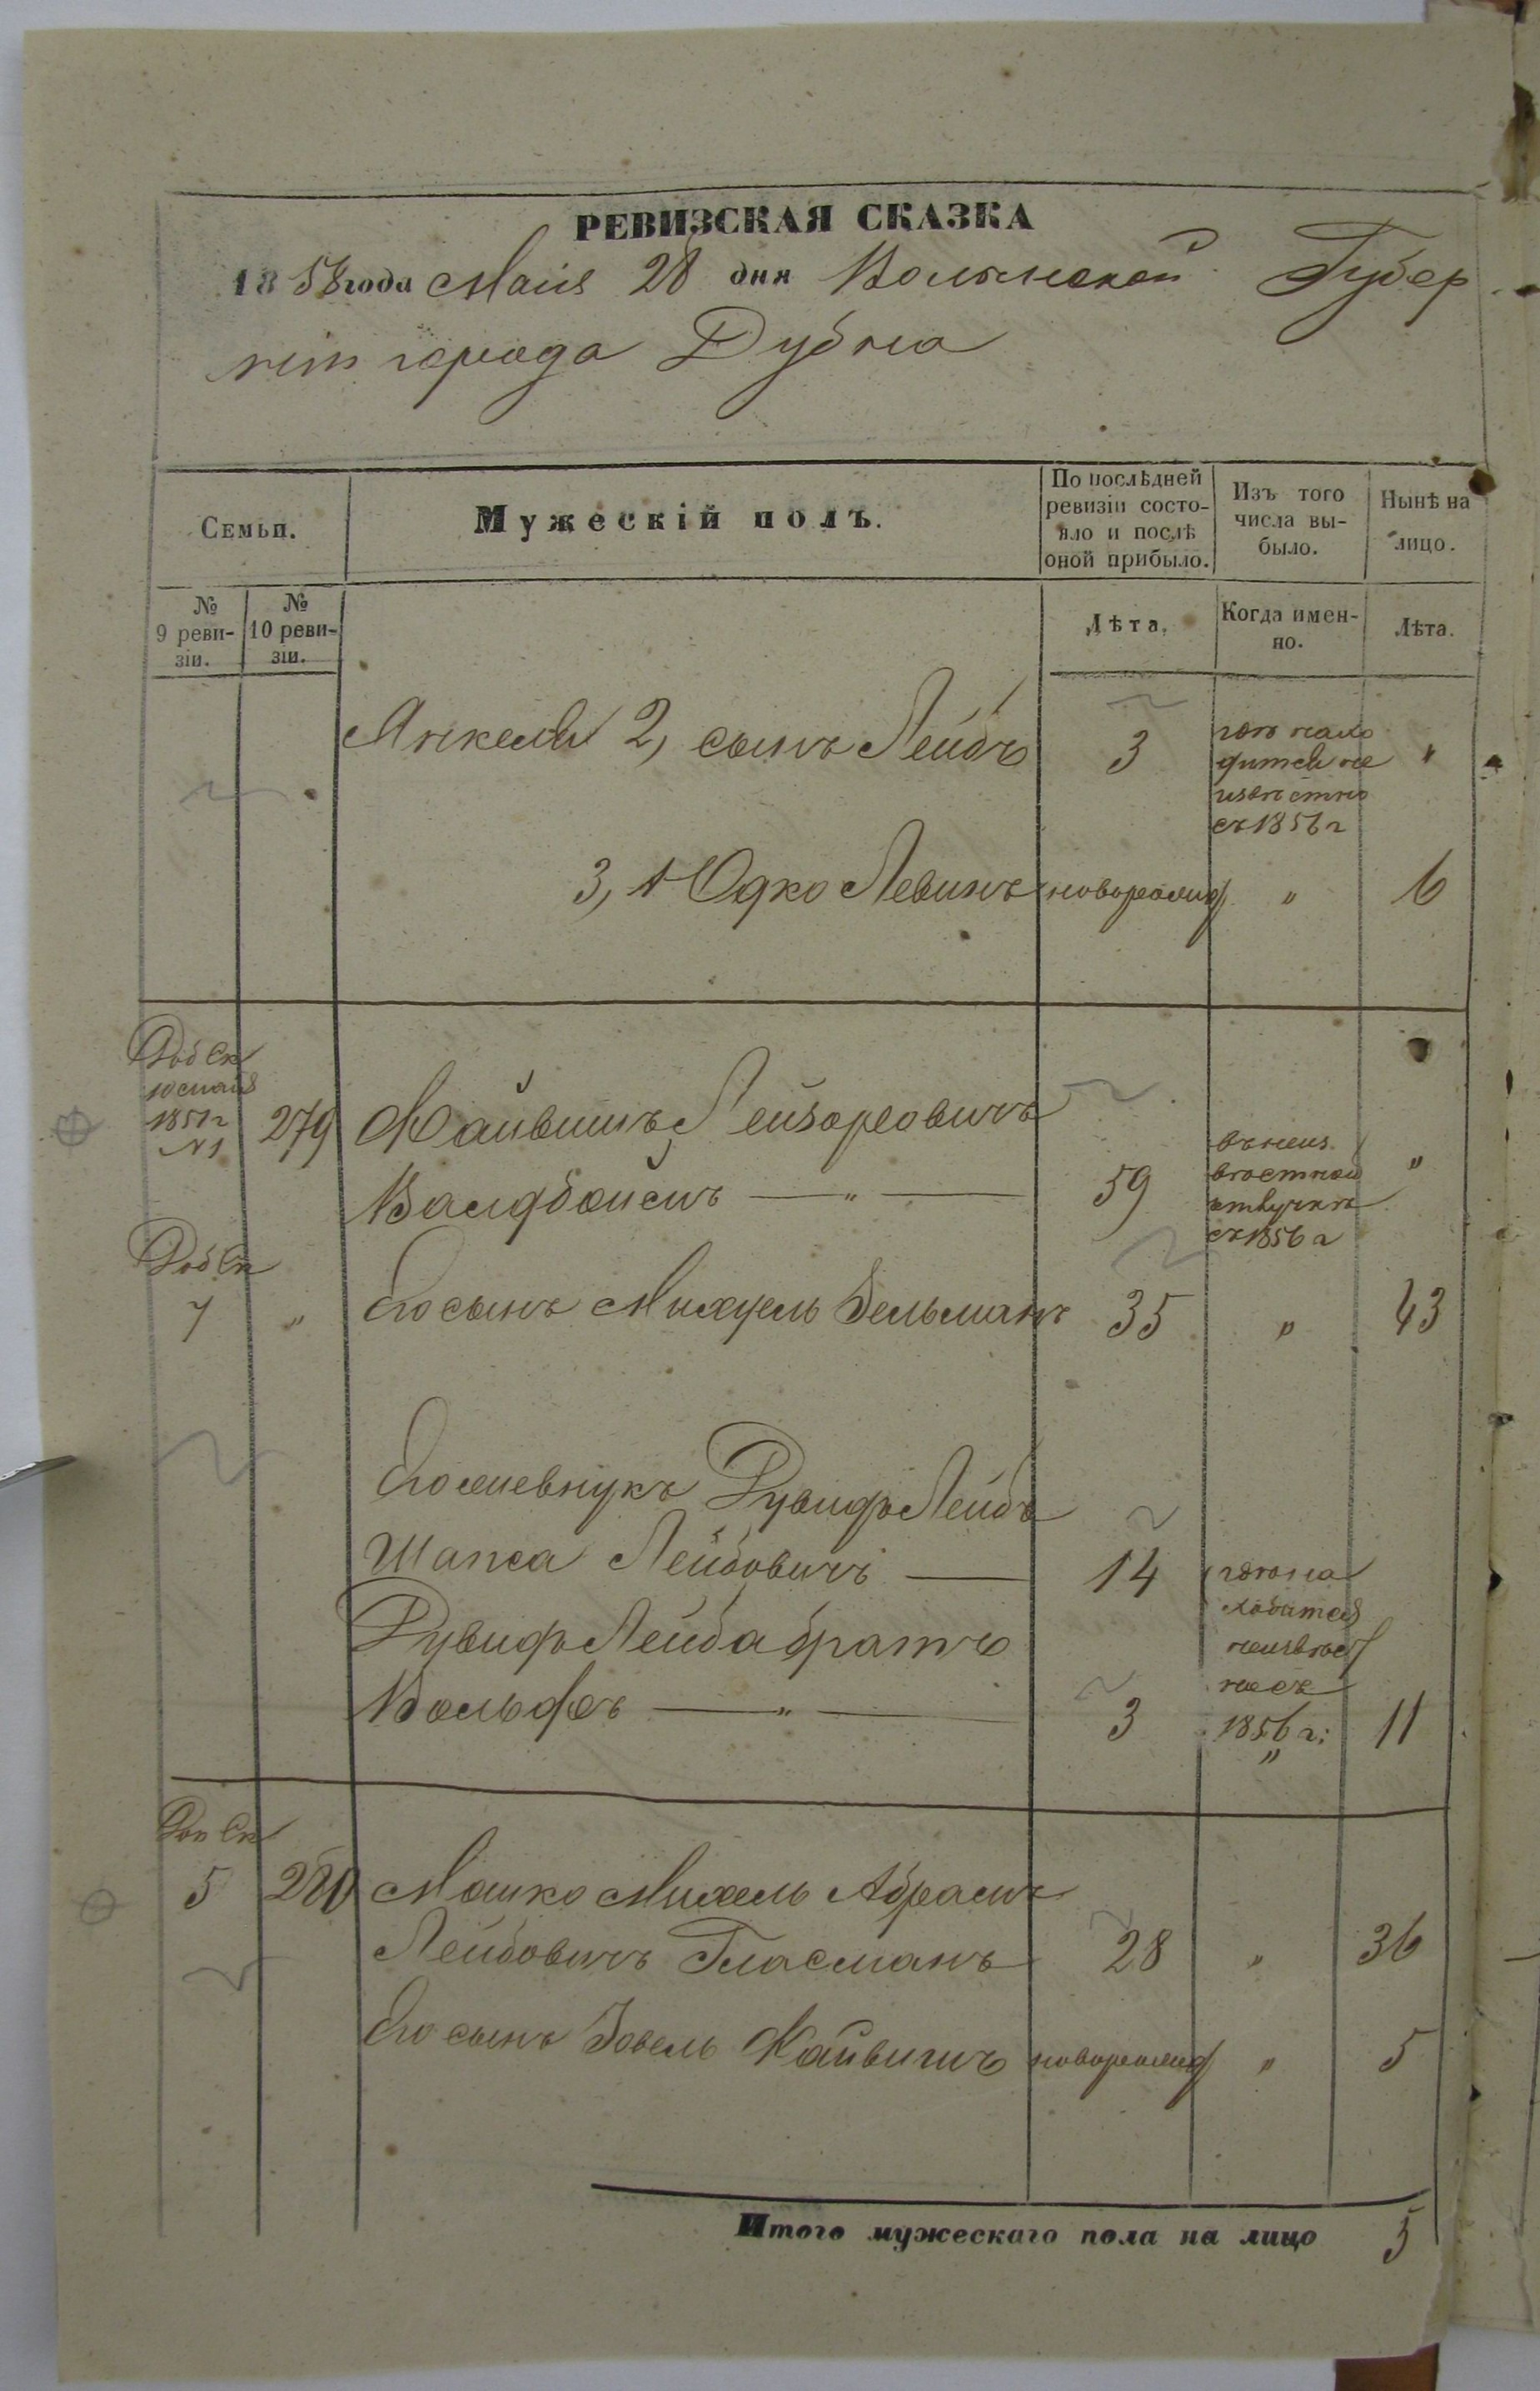 РЕВИЗСКАЯ СКАЗКА
1858 года Маія 28 дня Волынской Губер
ніи города Дубна
Семьи.
Мужескій полъ.
По послѣдней ревизіи состо-
яло и послѣ
оной прибыло.
Изъ того
числа вы-
было.
Нынѣ на
лицо.
№
9 реви-
зіи.
№
10 реви-
зіи.
Лѣта.
Когда имен-
но.
Лѣта.
Янкеля 2, сынъ Лейбъ 3 гдѣ нахо
дится не "
извѣстно
съ 1856 г
3, Юдко Левинъ новорожд " 6
Доб Ск
10 мая
1851 г
№ 1
279 Файвишъ Лейзоровичъ
Валдбоймъ — " — 59
въ неиз
вѣстной "
отлучкѣ
съ 1856 г
Доб Ск
7 " Его сынъ Михель Зельманъ 35 " 43
Его внукъ Рувинъ Лейбъ
Шапса Лейбовичъ — 14 гдѣ на
ходится
Рувинъ Лейба братъ неизвѣст
но съ
Вольфъ — " — 3 1856 г: 11
"
Доп Ск
5 280 Мошко Михель Абрамъ
Лейбовичъ Гласманъ 28 " 36
Его сынъ Іовель Файвишъ новорожд " 5
Итого мужескаго пола на лицо 5